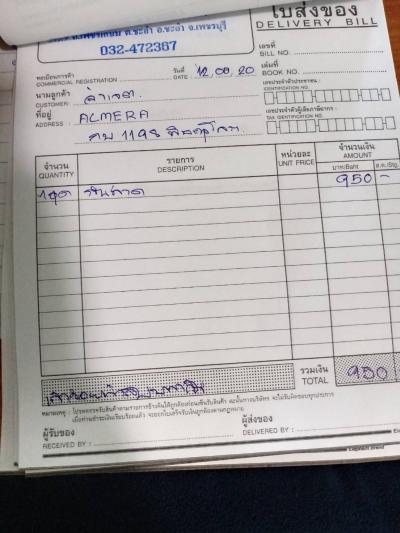 ใบส่งของ
DELIVERY BILL
ต.ชะอำ อ.ชะอำ จ.เพชรบุรี
032-472367
เลขที่
BILL NO.
ทะเบียนการค้า
COMMERCIAL REGISTRATION
วันที่
DATE 12.09.20
เล่มที่
BOOK NO.
นามลูกค้า
CUSTOMER
เลขประจำตัวประชาชน
IDENTIFICATION NO.
ที่อยู่
ADDRESS ALMERA
เลขประจำตัวผู้เสียภาษีอากร
TAX IDENTIFICATION NO.
1198 พิษณุโลก
จำนวน
QUANTITY
รายการ
DESCRIPTION
หน่วยละ
UNIT PRICE
จำนวนเงิน
AMOUNT
บาท/Baht ส.ต./Stg.
1ชุด 950 -
รวมเงิน
TOTAL 950
หมายเหตุ : โปรดตรวจรับสินค้าตามรายการข้างต้นให้ถูกต้องก่อนเซ็นรับสินค้า
ผู้รับของ
RECEIVED BY :
ผู้ส่งของ
DELIVERED BY :
Elephant Brand